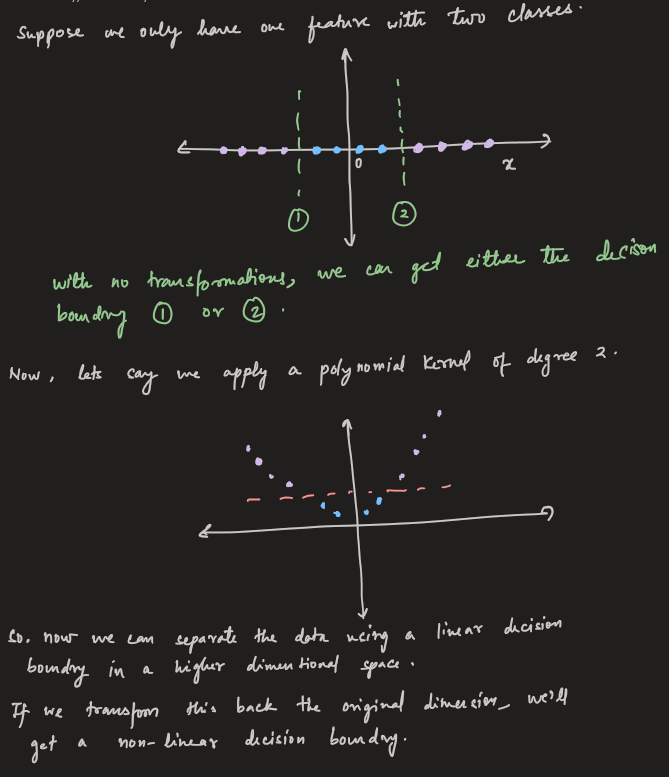 Suppose we only have one feature with two classes.
0
x
1
2
with no transformations, we can get either the decison
boundry 1 or 2.
Now, lets say we apply a polynomial kernel of degree 2.
So, now we can separate the data using a linear decision
boundry in a higher dimentional space.
If we transform this back the original dimension, we'll
get a non-linear decision boundry.